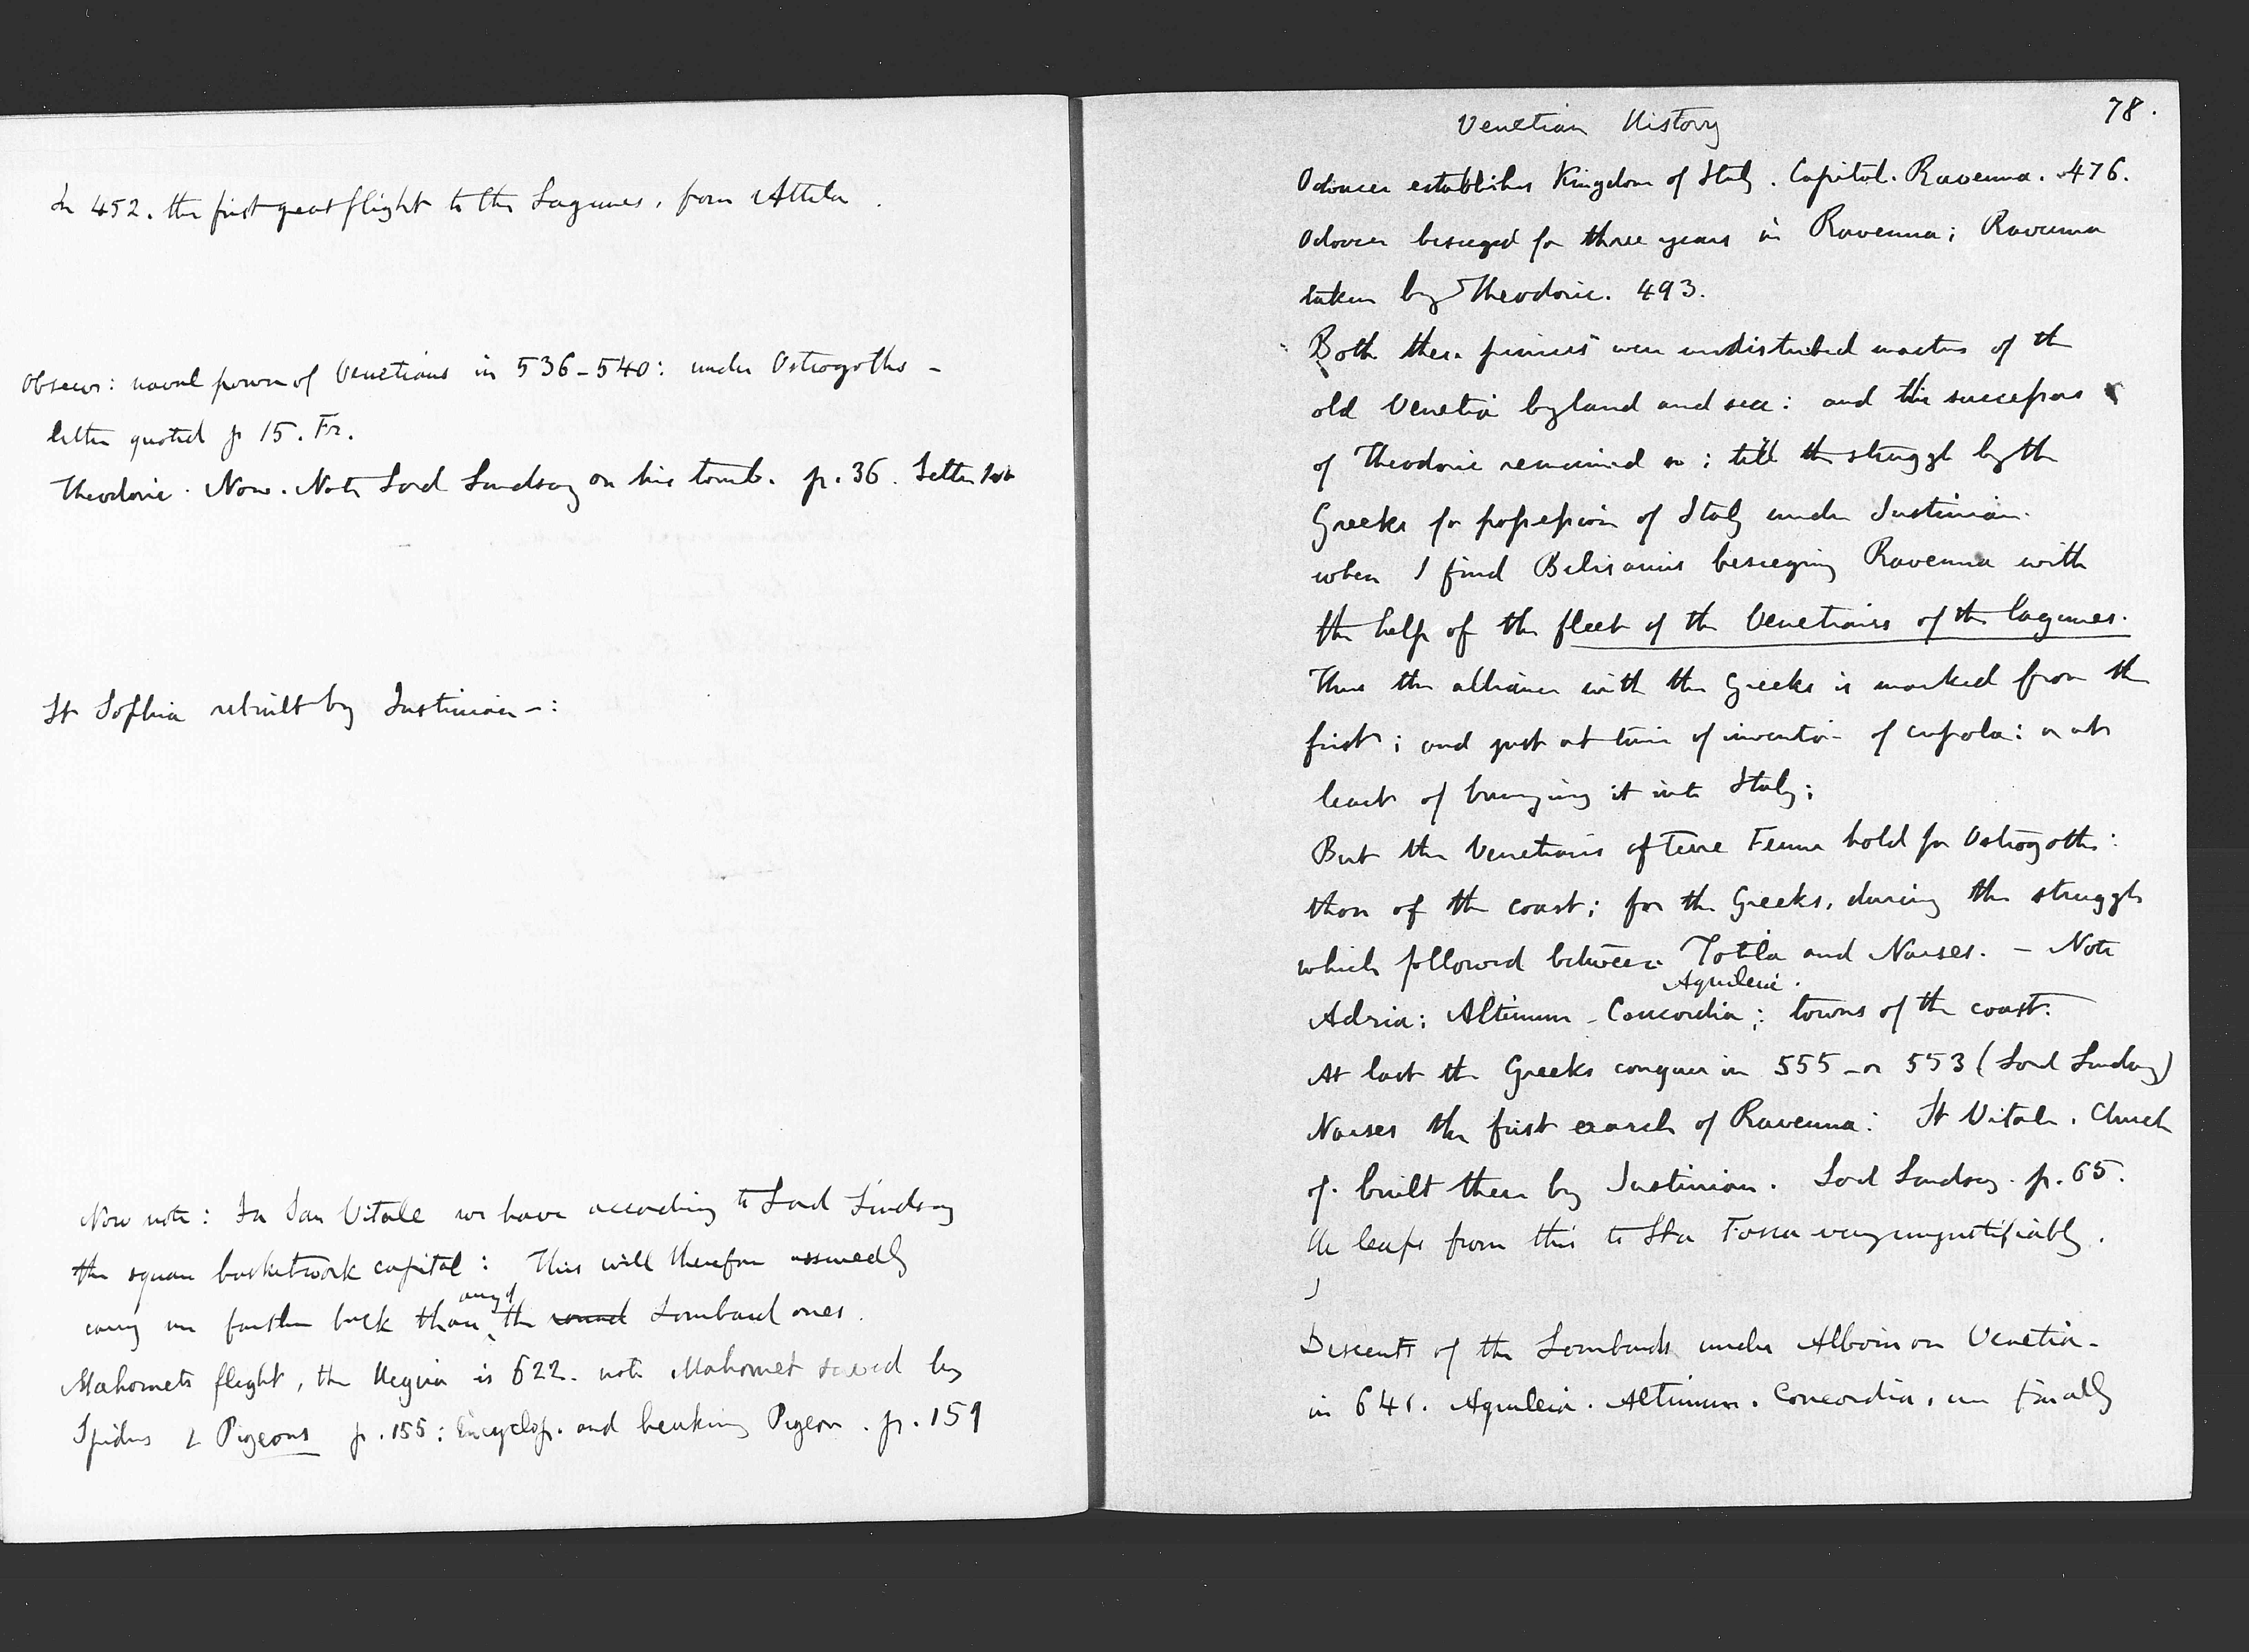 In 452. the first great flight to the Lagunes, from Attila.
Observe: naval power of Venetians in 536-540: under Ostrogoths -
letter quoted p 15. Fr.
Theodoric. Now. Note Lord Lindsay on his tomb. p. 36. Letter 1st
St Sophia rebuilt by Justinian -:
Now note: In San Vitale we have according to Lord Lindsay
the square basketwork capital: This will therefore assuredly
carry us farther back than any of the round Lombard ones.
Mahomets flight, the Hegira is 622. note Mahomet saved by
Spiders & Pigeons p. 155: Encyclop. and Pigeon. p. 159
78.
Venetian History
Odoacer establishes Kingdom of Italy. Capital. Ravenna. 476.
Odoacer besieged for three years in Ravenna; Ravenna
taken by Theodoric. 493.
Both these princes were undisturbed masters of the
old Venetia by land and sea: and the successors
of Theodoric remained so; till the struggle by the
Greeks for possession of Italy under Justinian.
when I find Belisarius besieging Ravenna with
the help of the fleet of the Venetians of the lagunes.
Thus the alliance with the Greeks is marked from the
first; and just at time of invention of cupola: or at
least of bringing it into Italy;
But the Venetians of Terra Firma hold for Ostrogoths:
those of the coast; for the Greeks, during the struggle
which followed between Totila and Narses. - Note
Adria: Altinum - Concordia; Aquileia. : towns of the coast.
At last the Greeks conquer in 555 - or 553 (Lord Lindsay)
Narses the first exarch of Ravenna: St Vitale. Church
of. built then by Justinian. Lord Lindsay. p. 65.
He leaps from this to Sta Fosca very unjustifiably.
Descent of the Lombards under Alboin on Venetia.
in 641. Aquileia. Altinum. Concordia, are finally